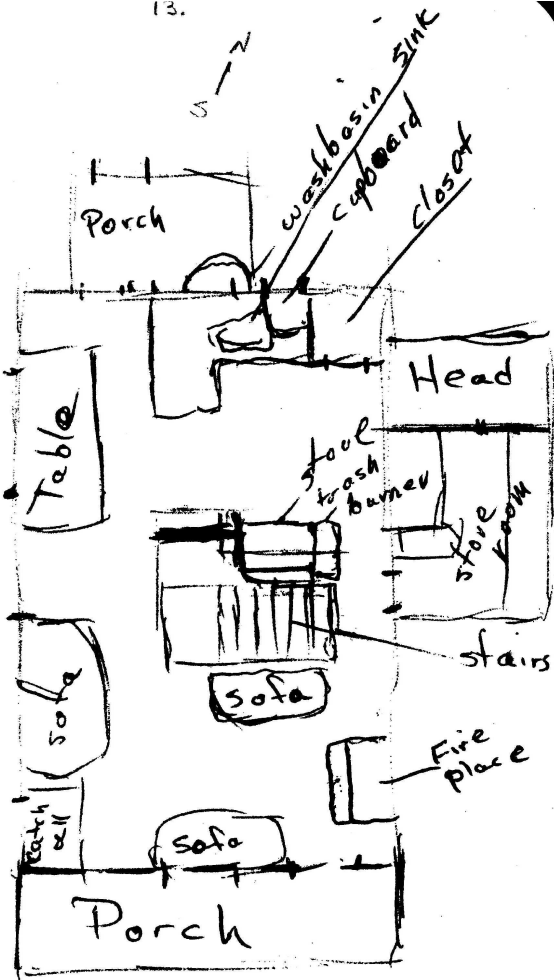 13.
N
S
washbasin
Sink
cupboard
closet
Porch
Head
Table
trash
burner
store
room
stairs
sofa
sofa
Fire
place
catch
all
sofa
Porch